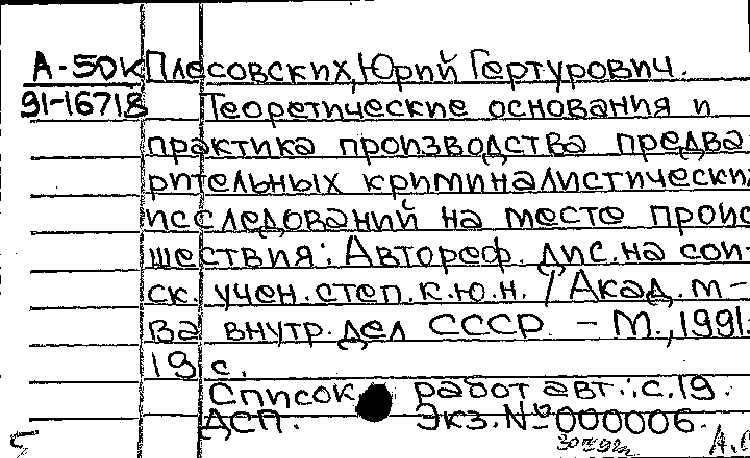 А-50к Плесовских, Юрий Гертурович.
91-16718 Теоретические основания и
практика производства предва
рительных криминалистически
исследований на месте проис
шествия: Автореф. дис. на сои-
ск. учен. степ. к.ю.н. / Акад. м-
ва внутр. дел СССР. - М., 1991.
19 с.
Список работ авт.: с. 19.
ДСП. Экз. № 000006.